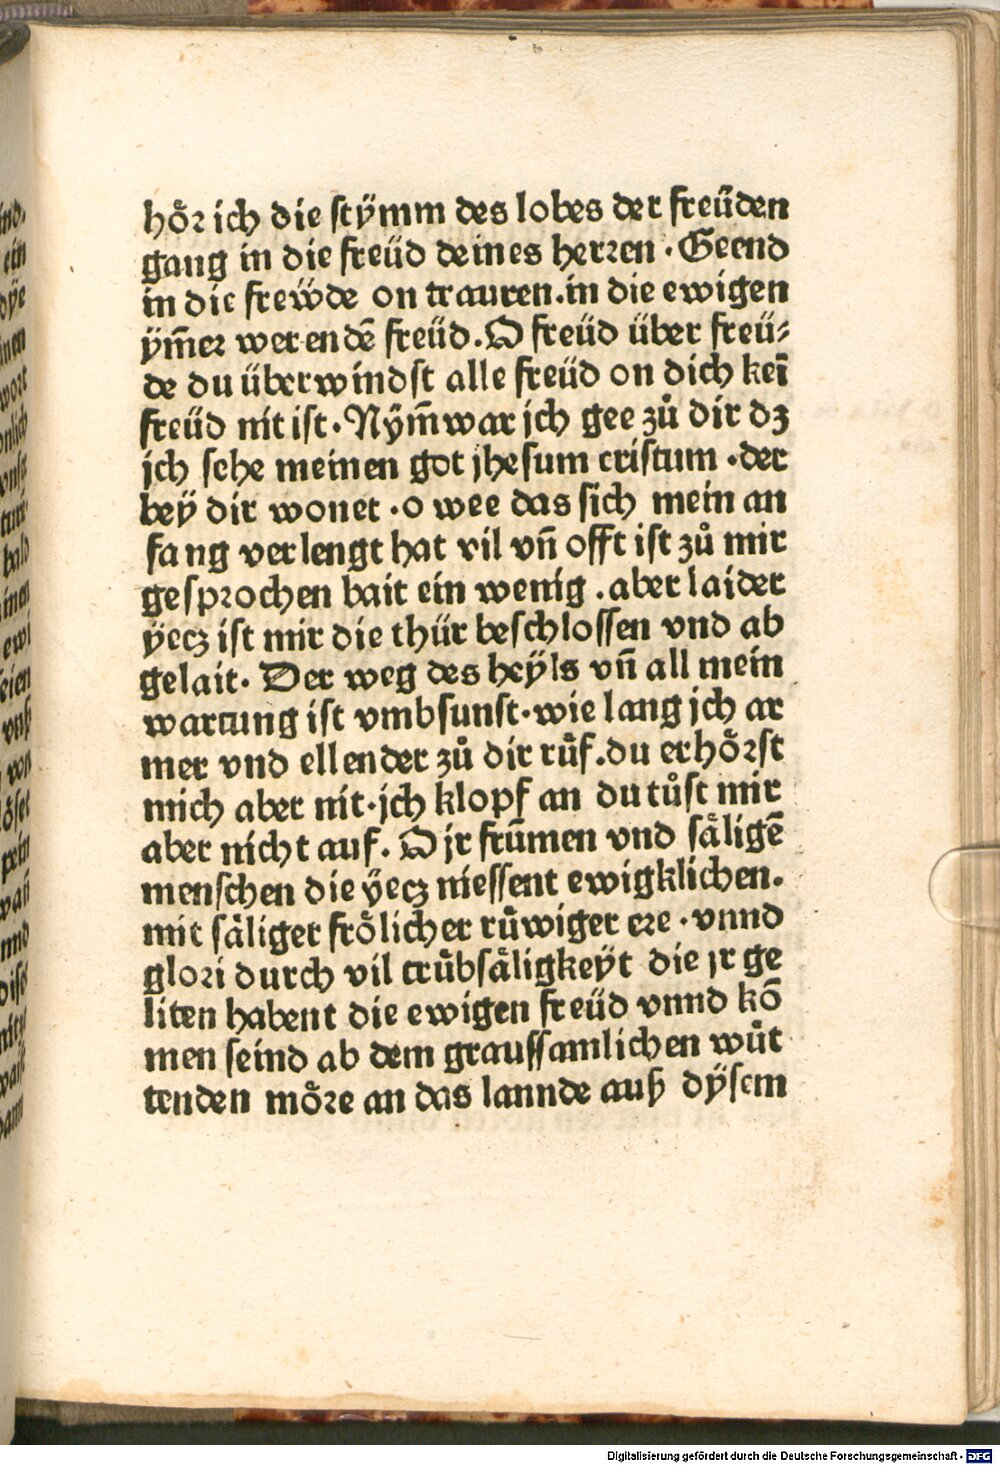 hoͤꝛ ich die ſtÿmm des lobes der freüden
gang in die freüd deines herꝛen · Geend
in die freẅde on trauren . in die ewigen
ÿm̄eꝛ werendē freüd . O freüd über freü⸗
de du überwindſt alle freüd on dich keī
freüd nit iſt · Nÿm̄ war jch gee zuͦ dir dꝫ
jch ſehe meinen got jheſum criſtum · der
beÿ dir wonet · o wee das ſich mein an
fang verlengt hat vil vn̄ offt iſt zuͦ mir
geſpꝛochen bait ein wenig . aber laider
ÿecꝫ iſt mir die thür beſchloſſen vnd ab
gelait · Der weg des heÿls vn̄ all mein
wartung iſt vmbſunſt · wie lang jch ar
mer vnd ellender zuͦ dir ruͤf . du erhoͤꝛſt
mich aber nit · jch klopf an du tuͦſt mir
aber nicht auf . O jr frūmen vnd ſaͤligē
menſchen die ÿecꝫ nieſſent ewigklichen .
mit ſaͤliger froͤlicher ruͤwiger eꝛe · vnnd
gloꝛi durch vil truͤbſaͤligkeÿt die jr ge
liten habent die ewigen freüd vnnd kō
men ſeind ab dem grauſſamlichen wuͤt
tenden moͤꝛe an das lannde auß dÿſem
Digitalisierung gefördert durch die Deutsche Forschungsgemeinschaft - DFG